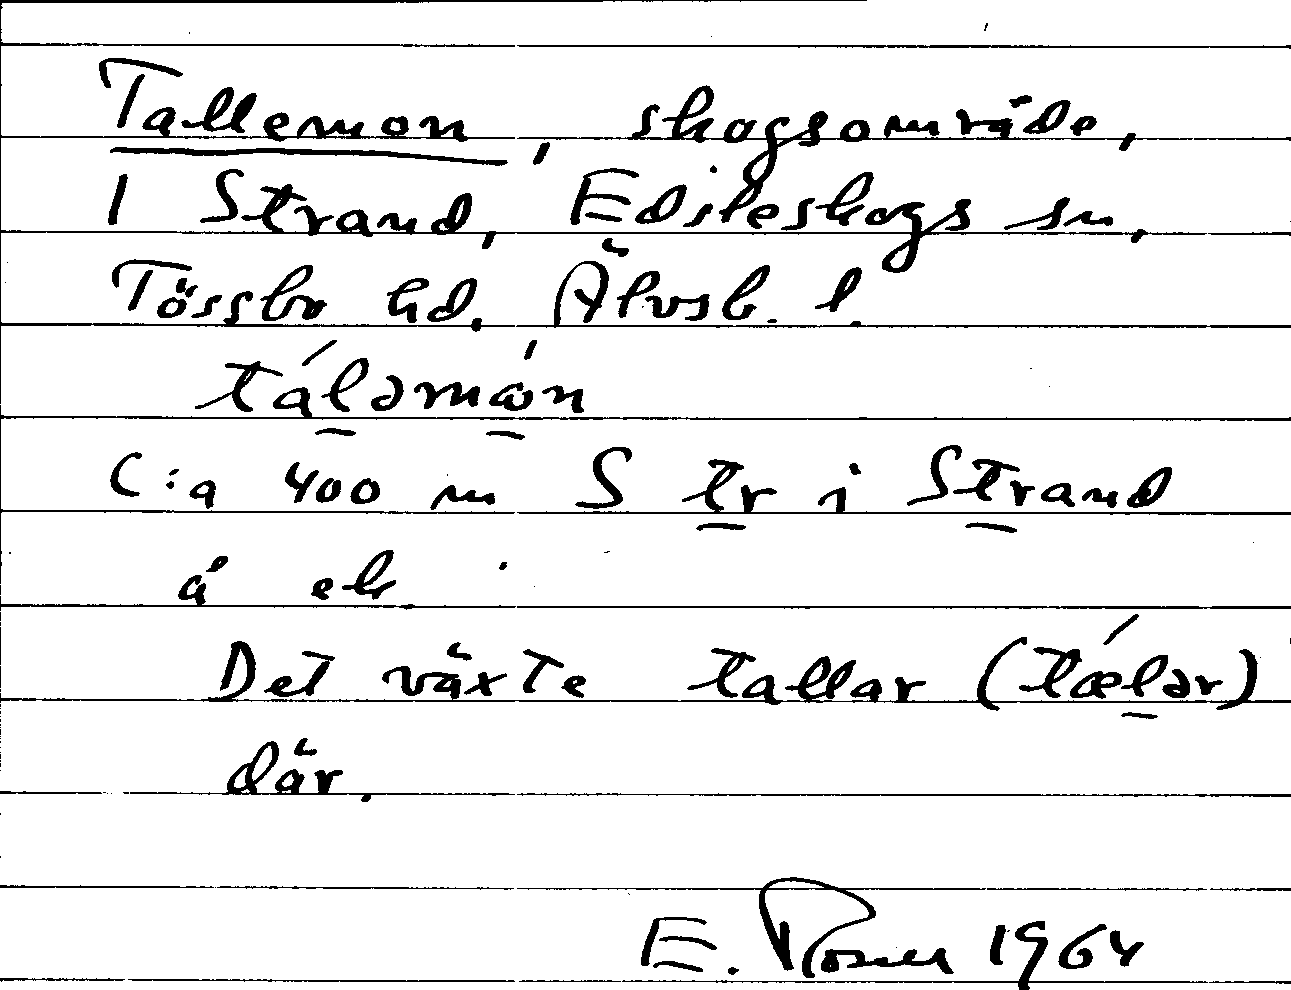 Tallemon, skogsområde,
I Strand, Edsleskogs sn,
Tössbo hd. Älvsb. l.
táləmón
C:a 400 m S tr i Strand
å ek
Det växte tallar (tǽlər)
där.
E. Rosell 1964